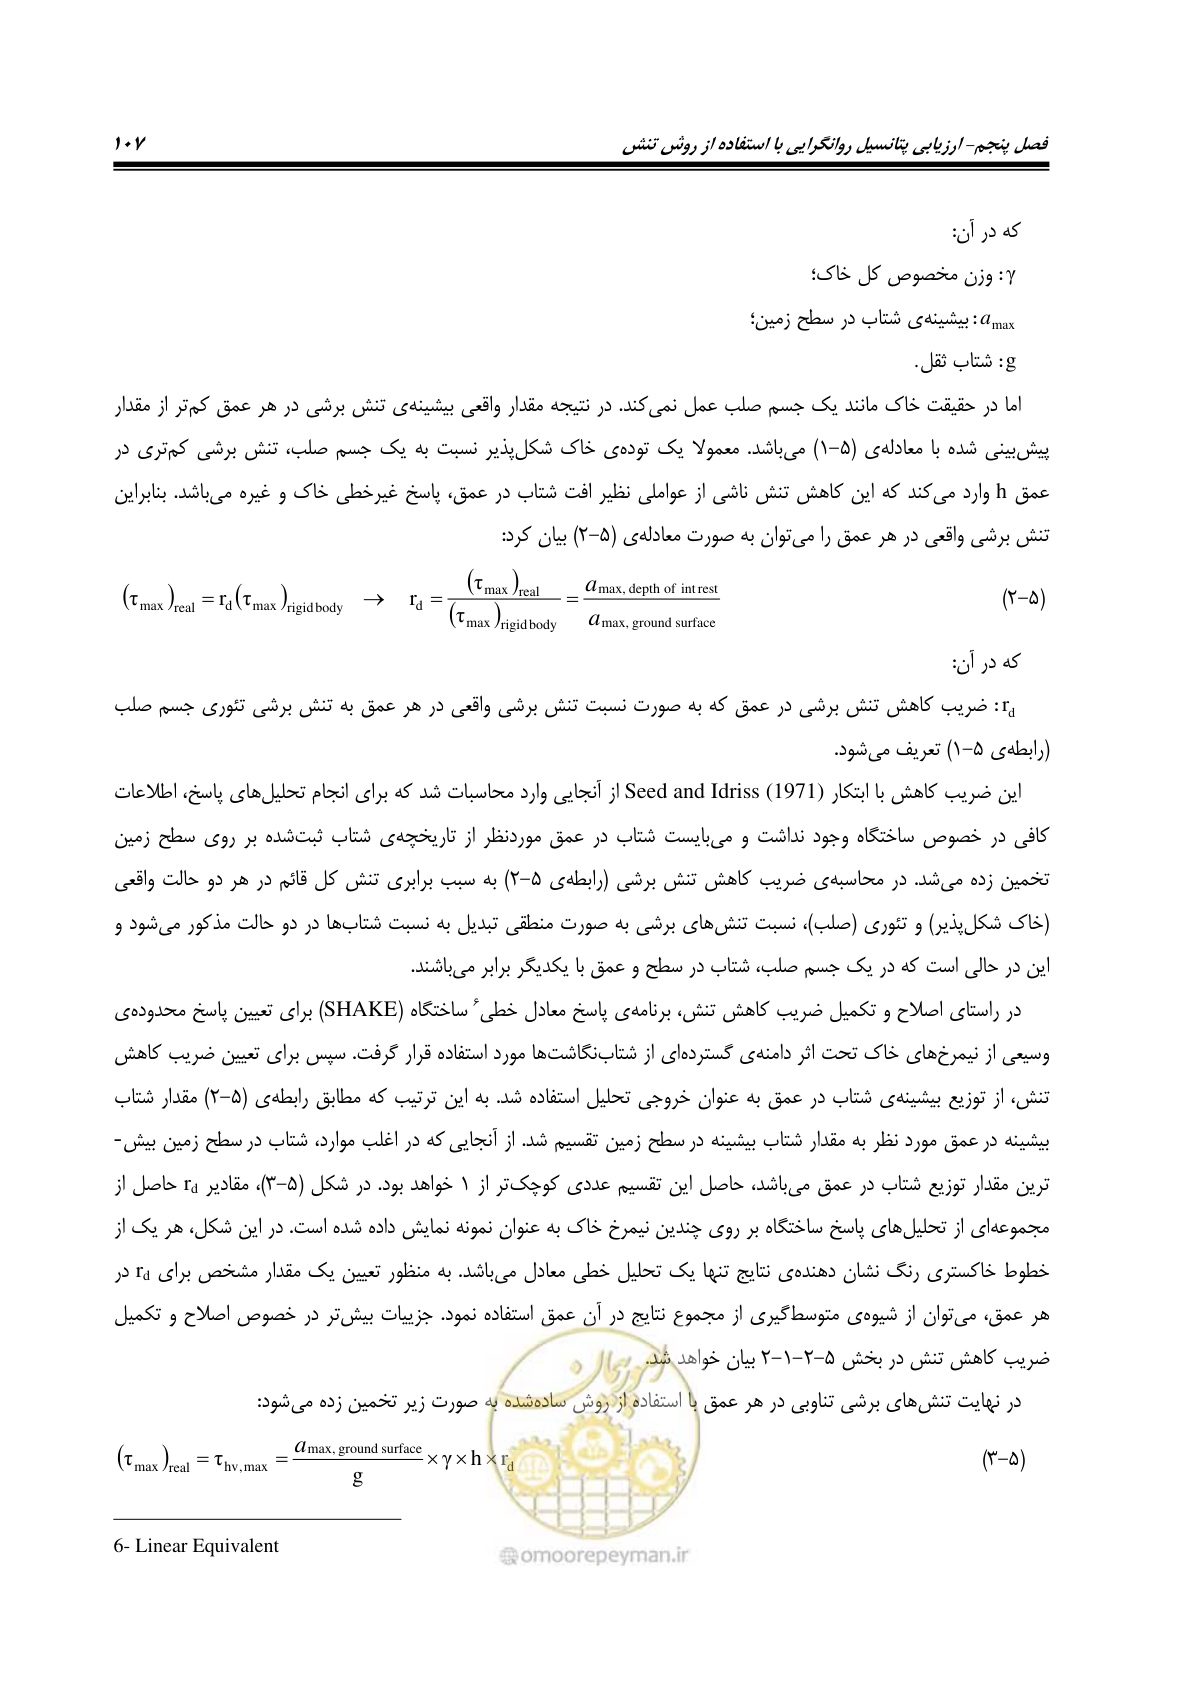 فصل پنجم- ارزیابی پتانسیل روانگرایی با استفاده از روش تنش ۱۰۷
که در آن:
γ: وزن مخصوص کل خاک؛
a max: بیشینه‌ی شتاب در سطح زمین؛
g: شتاب ثقل.
اما در حقیقت خاک مانند یک جسم صلب عمل نمی‌کند. در نتیجه مقدار واقعی بیشینه‌ی تنش برشی در هر عمق کم‌تر از مقدار
پیش‌بینی شده با معادله‌ی (۵-۱) می‌باشد. معمولا یک توده‌ی خاک شکل‌پذیر نسبت به یک جسم صلب، تنش برشی کم‌تری در
عمق h وارد می‌کند که این کاهش تنش ناشی از عواملی نظیر افت شتاب در عمق، پاسخ غیرخطی خاک و غیره می‌باشد. بنابراین
تنش برشی واقعی در هر عمق را می‌توان به صورت معادله‌ی (۵-۲) بیان کرد:
(τ max) real = r d (τ max) rigid body → r d = (τ max) real / (τ max) rigid body = a max, depth of intrest / a max, ground surface (۵-۲)
که در آن:
r d: ضریب کاهش تنش برشی در عمق که به صورت نسبت تنش برشی واقعی در هر عمق به تنش برشی تئوری جسم صلب
(رابطه‌ی ۵-۱) تعریف می‌شود.
این ضریب کاهش با ابتکار Seed and Idriss (1971) از آنجایی وارد محاسبات شد که برای انجام تحلیل‌های پاسخ، اطلاعات
کافی در خصوص ساختگاه وجود نداشت و می‌بایست شتاب در عمق موردنظر از تاریخچه‌ی شتاب ثبت‌شده بر روی سطح زمین
تخمین زده می‌شد. در محاسبه‌ی ضریب کاهش تنش برشی (رابطه‌ی ۵-۲) به سبب برابری تنش کل قائم در هر دو حالت واقعی
(خاک شکل‌پذیر) و تئوری (صلب)، نسبت تنش‌های برشی به صورت منطقی تبدیل به نسبت شتاب‌ها در دو حالت مذکور می‌شود و
این در حالی است که در یک جسم صلب، شتاب در سطح و عمق با یکدیگر برابر می‌باشند.
در راستای اصلاح و تکمیل ضریب کاهش تنش، برنامه‌ی پاسخ معادل خطی۶ ساختگاه (SHAKE) برای تعیین پاسخ محدوده‌ی
وسیعی از نیمرخ‌های خاک تحت اثر دامنه‌ی گسترده‌ای از شتاب‌نگاشت‌ها مورد استفاده قرار گرفت. سپس برای تعیین ضریب کاهش
تنش، از توزیع بیشینه‌ی شتاب در عمق به عنوان خروجی تحلیل استفاده شد. به این ترتیب که مطابق رابطه‌ی (۵-۲) مقدار شتاب
بیشینه در عمق مورد نظر به مقدار شتاب بیشینه در سطح زمین تقسیم شد. از آنجایی که در اغلب موارد، شتاب در سطح زمین بیش-
ترین مقدار توزیع شتاب در عمق می‌باشد، حاصل این تقسیم عددی کوچک‌تر از ۱ خواهد بود. در شکل (۵-۳)، مقادیر r d حاصل از
مجموعه‌ای از تحلیل‌های پاسخ ساختگاه بر روی چندین نیمرخ خاک به عنوان نمونه نمایش داده شده است. در این شکل، هر یک از
خطوط خاکستری رنگ نشان دهنده‌ی نتایج تنها یک تحلیل خطی معادل می‌باشد. به منظور تعیین یک مقدار مشخص برای r d در
هر عمق، می‌توان از شیوه‌ی متوسط‌گیری از مجموع نتایج در آن عمق استفاده نمود. جزییات بیش‌تر در خصوص اصلاح و تکمیل
ضریب کاهش تنش در بخش ۵-۲-۱-۲ بیان خواهد شد.
در نهایت تنش‌های برشی تناوبی در هر عمق با استفاده از روش ساده‌شده به صورت زیر تخمین زده می‌شود:
(τ max) real = τ hv,max = a max, ground surface / g × γ × h × r d (۵-۳)
6- Linear Equivalent
امور پیمان
@omoorepeyman.ir